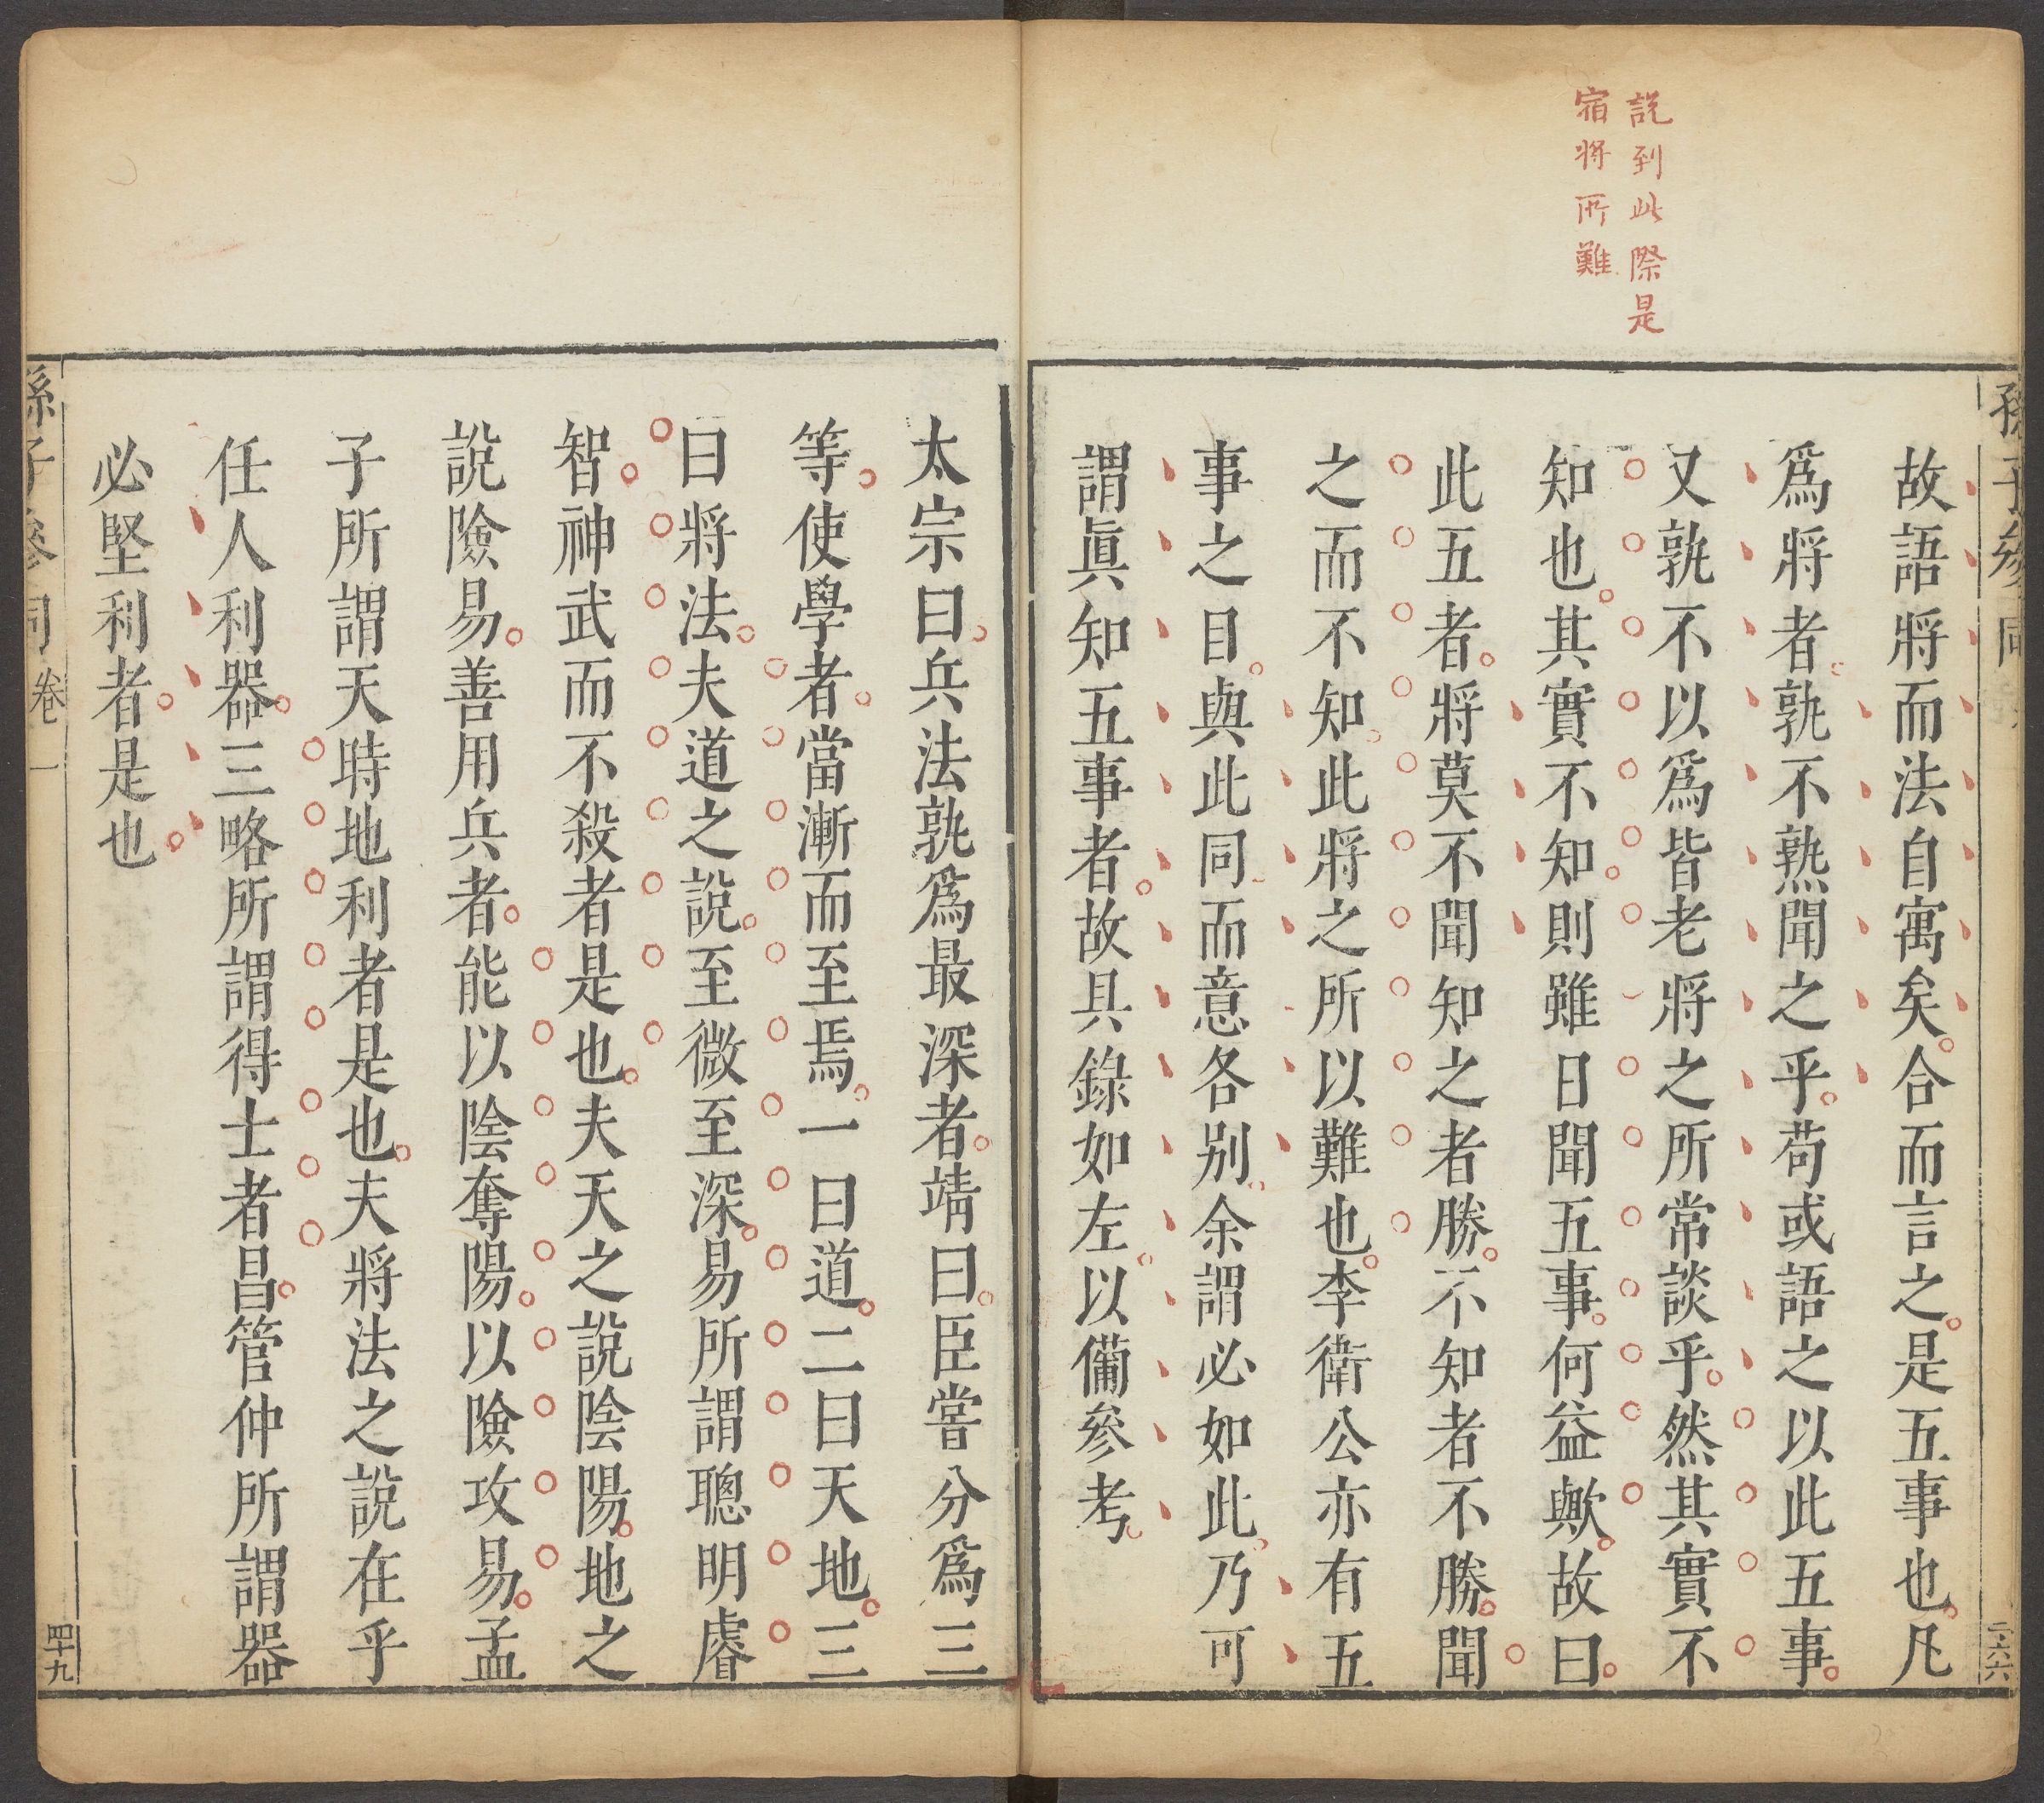 說到此際是
宿將所難
故語將而法自寓矣合而言之是五事也凡
爲將者孰不熟聞之乎苟或語之以此五事
又孰不以爲皆老將之所常談乎然其實不
知也其實不知則雖日聞五事何益歟故曰
此五者將莫不聞知之者勝不知者不勝聞
之而不知此將之所以難也李衛公亦有五
事之目與此同而意各別余謂必如此乃可
謂眞知五事者故具錄如左以備參考
太宗曰兵法孰爲最深者靖曰臣嘗分爲三
等使學者當漸而至焉一曰道二曰天地三
曰將法夫道之說至微至深易所謂聰明睿
智神武而不殺者是也夫天之說陰陽地之
說險易善用兵者能以陰奪陽以險攻易孟
子所謂天時地利者是也夫將法之說在乎
任人利器三略所謂得士者昌管仲所謂器
必堅利者是也
孫子參同 卷一
四十九